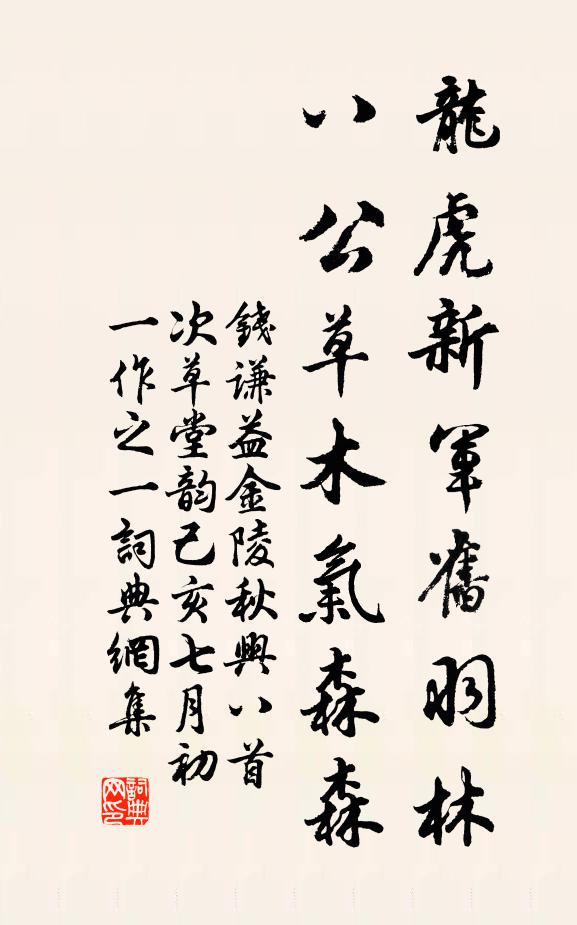 龍虎新軍舊羽林
八公草木氣森森
錢謙益金陵秋興八首
次草堂韵己亥七月初
一作之一詞典網集
詞典网印